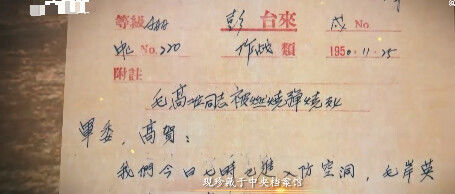 等級 彭 台來 戌 No.
No. 220 作战 類 1950·11·25
附註
毛高如同志被燃燒弹燒死
軍委，高賀：
我們今日七時已進入防空洞，毛岸英
现珍藏于中央档案馆